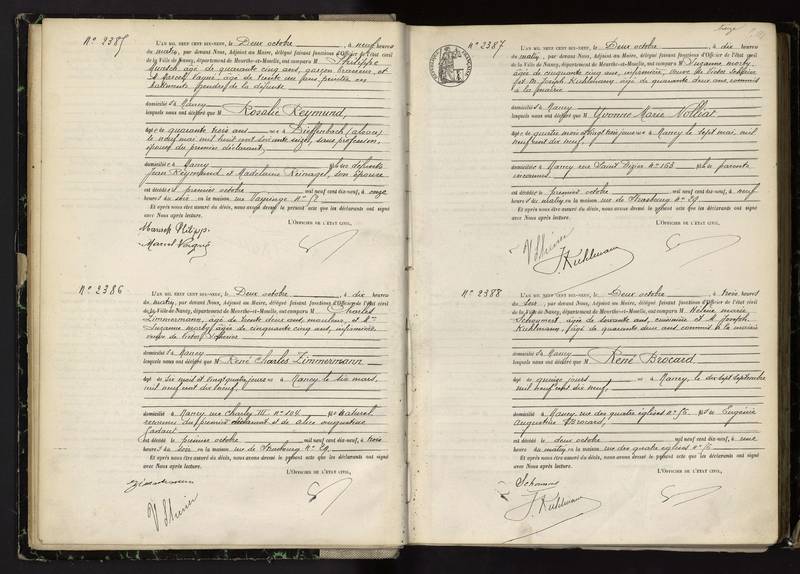 N° 2385
L'AN MIL NEUF CENT DIX-NEUF, le Deux octobre, à neuf heures
du matin, par devant Nous, Adjoint au Maire, délégué faisant fonctions d'Officier de l'état civil
de la Ville de Nancy, département de Meurthe-et-Moselle, ont comparu M Philippe
âgé de quarante cinq ans, garçon brasseur, et
Marcel âgé de trente six ans,
de la défunte
domiciliés à Nancy
lesquels nous ont déclaré que M Rosalie Reymund,
âgée de quarante trois ans née à Bieffenbach (alsace)
le neuf mai mil huit cent soixante seize, sans profession,
épouse du premier déclarant,
domiciliée à Nancy fille des défunts
Jean Reymund et Madeleine son épouse
est décédée le premier octobre mil neuf cent dix-neuf, à onze
heures du soir en la maison rue
Et après nous être assuré du décès, nous avons dressé le présent acte que les déclarants ont signé
avec Nous après lecture.
L'OFFICIER DE L'ÉTAT CIVIL,
N° 2386
L'AN MIL NEUF CENT DIX-NEUF, le Deux octobre, à dix heures
du matin, par devant Nous, Adjoint au Maire, délégué faisant fonctions d'Officier de l'état civil
de la Ville de Nancy, département de Meurthe-et-Moselle, ont comparu M Charles
Zimmermann, âgé de trente deux ans, mouleur, et Me
Suzanne Morby âgée de cinquante cinq ans, infirmière
veuve de Victor
domiciliés à Nancy
lesquels nous ont déclaré que M René Charles Zimmermann
âgé de six mois et vingt quatre jours né à Nancy le dix mars,
mil neuf cent dix neuf,
domicilié à Nancy, rue Charles III n° 104 fils naturel
reconnu du premier déclarant et de Alice Augustine
est décédé le premier octobre mil neuf cent dix-neuf, à trois
heures du soir en la maison rue de Strasbourg n° 29
Et après nous être assuré du décès, nous avons dressé le présent acte que les déclarants ont signé
avec Nous après lecture.
L'OFFICIER DE L'ÉTAT CIVIL,
N° 2387
L'AN MIL NEUF CENT DIX-NEUF, le Deux octobre, à dix heures
du matin, par devant Nous, Adjoint au Maire, délégué faisant fonctions d'Officier de l'état civil
de la Ville de Nancy, département de Meurthe-et-Moselle, ont comparu M Suzanne Morby,
âgée de cinquante cinq ans, infirmière, veuve de Victor
et M. Joseph Kuhlmann âgé de quarante deux ans commis
à la mairie
domiciliés à Nancy
lesquels nous ont déclaré que M Yvonne Marie Nolliat
âgée de quatre mois vingt trois jours née à Nancy le sept mai, mil
neuf cent dix neuf,
domiciliée à Nancy rue Saint Dizier n° 153 fille de parents
inconnus
est décédée le premier octobre mil neuf cent dix-neuf, à neuf
heures du matin en la maison rue de Strasbourg n° 29
Et après nous être assuré du décès, nous avons dressé le présent acte que les déclarants ont signé
avec Nous après lecture.
L'OFFICIER DE L'ÉTAT CIVIL,
J. Kuhlmann
N° 2388
L'AN MIL NEUF CENT DIX-NEUF, le Deux octobre, à trois heures
du soir, par devant Nous, Adjoint au Maire, délégué faisant fonctions d'Officier de l'état civil
de la Ville de Nancy, département de Meurthe-et-Moselle, ont comparu M Hélène Marie
âgée de soixante ans, cuisinière et M Joseph
Kuhlmann, âgé de quarante deux ans commis à la mairie
domiciliés à Nancy
lesquels nous ont déclaré que M René Brocard,
âgé de quinze jours né à Nancy, le dix sept septembre
mil neuf cent dix neuf,
domicilié à Nancy, rue des quatre églises n° fils de Eugénie
Augustine Brocard,
est décédé le deux octobre mil neuf cent dix-neuf, à une
heure du matin en la maison rue des quatre églises n°
Et après nous être assuré du décès, nous avons dressé le présent acte que les déclarants ont signé
avec Nous après lecture.
L'OFFICIER DE L'ÉTAT CIVIL,
J. Kuhlmann